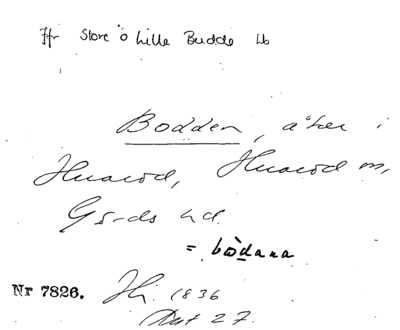 Jfr Store o lilla Budde Lb
Bodden, åker i
Huaröd, Huaröd sn,
Gärds hd.
= bòdana
Nr 7826. Hi. 1836
Akt 27.